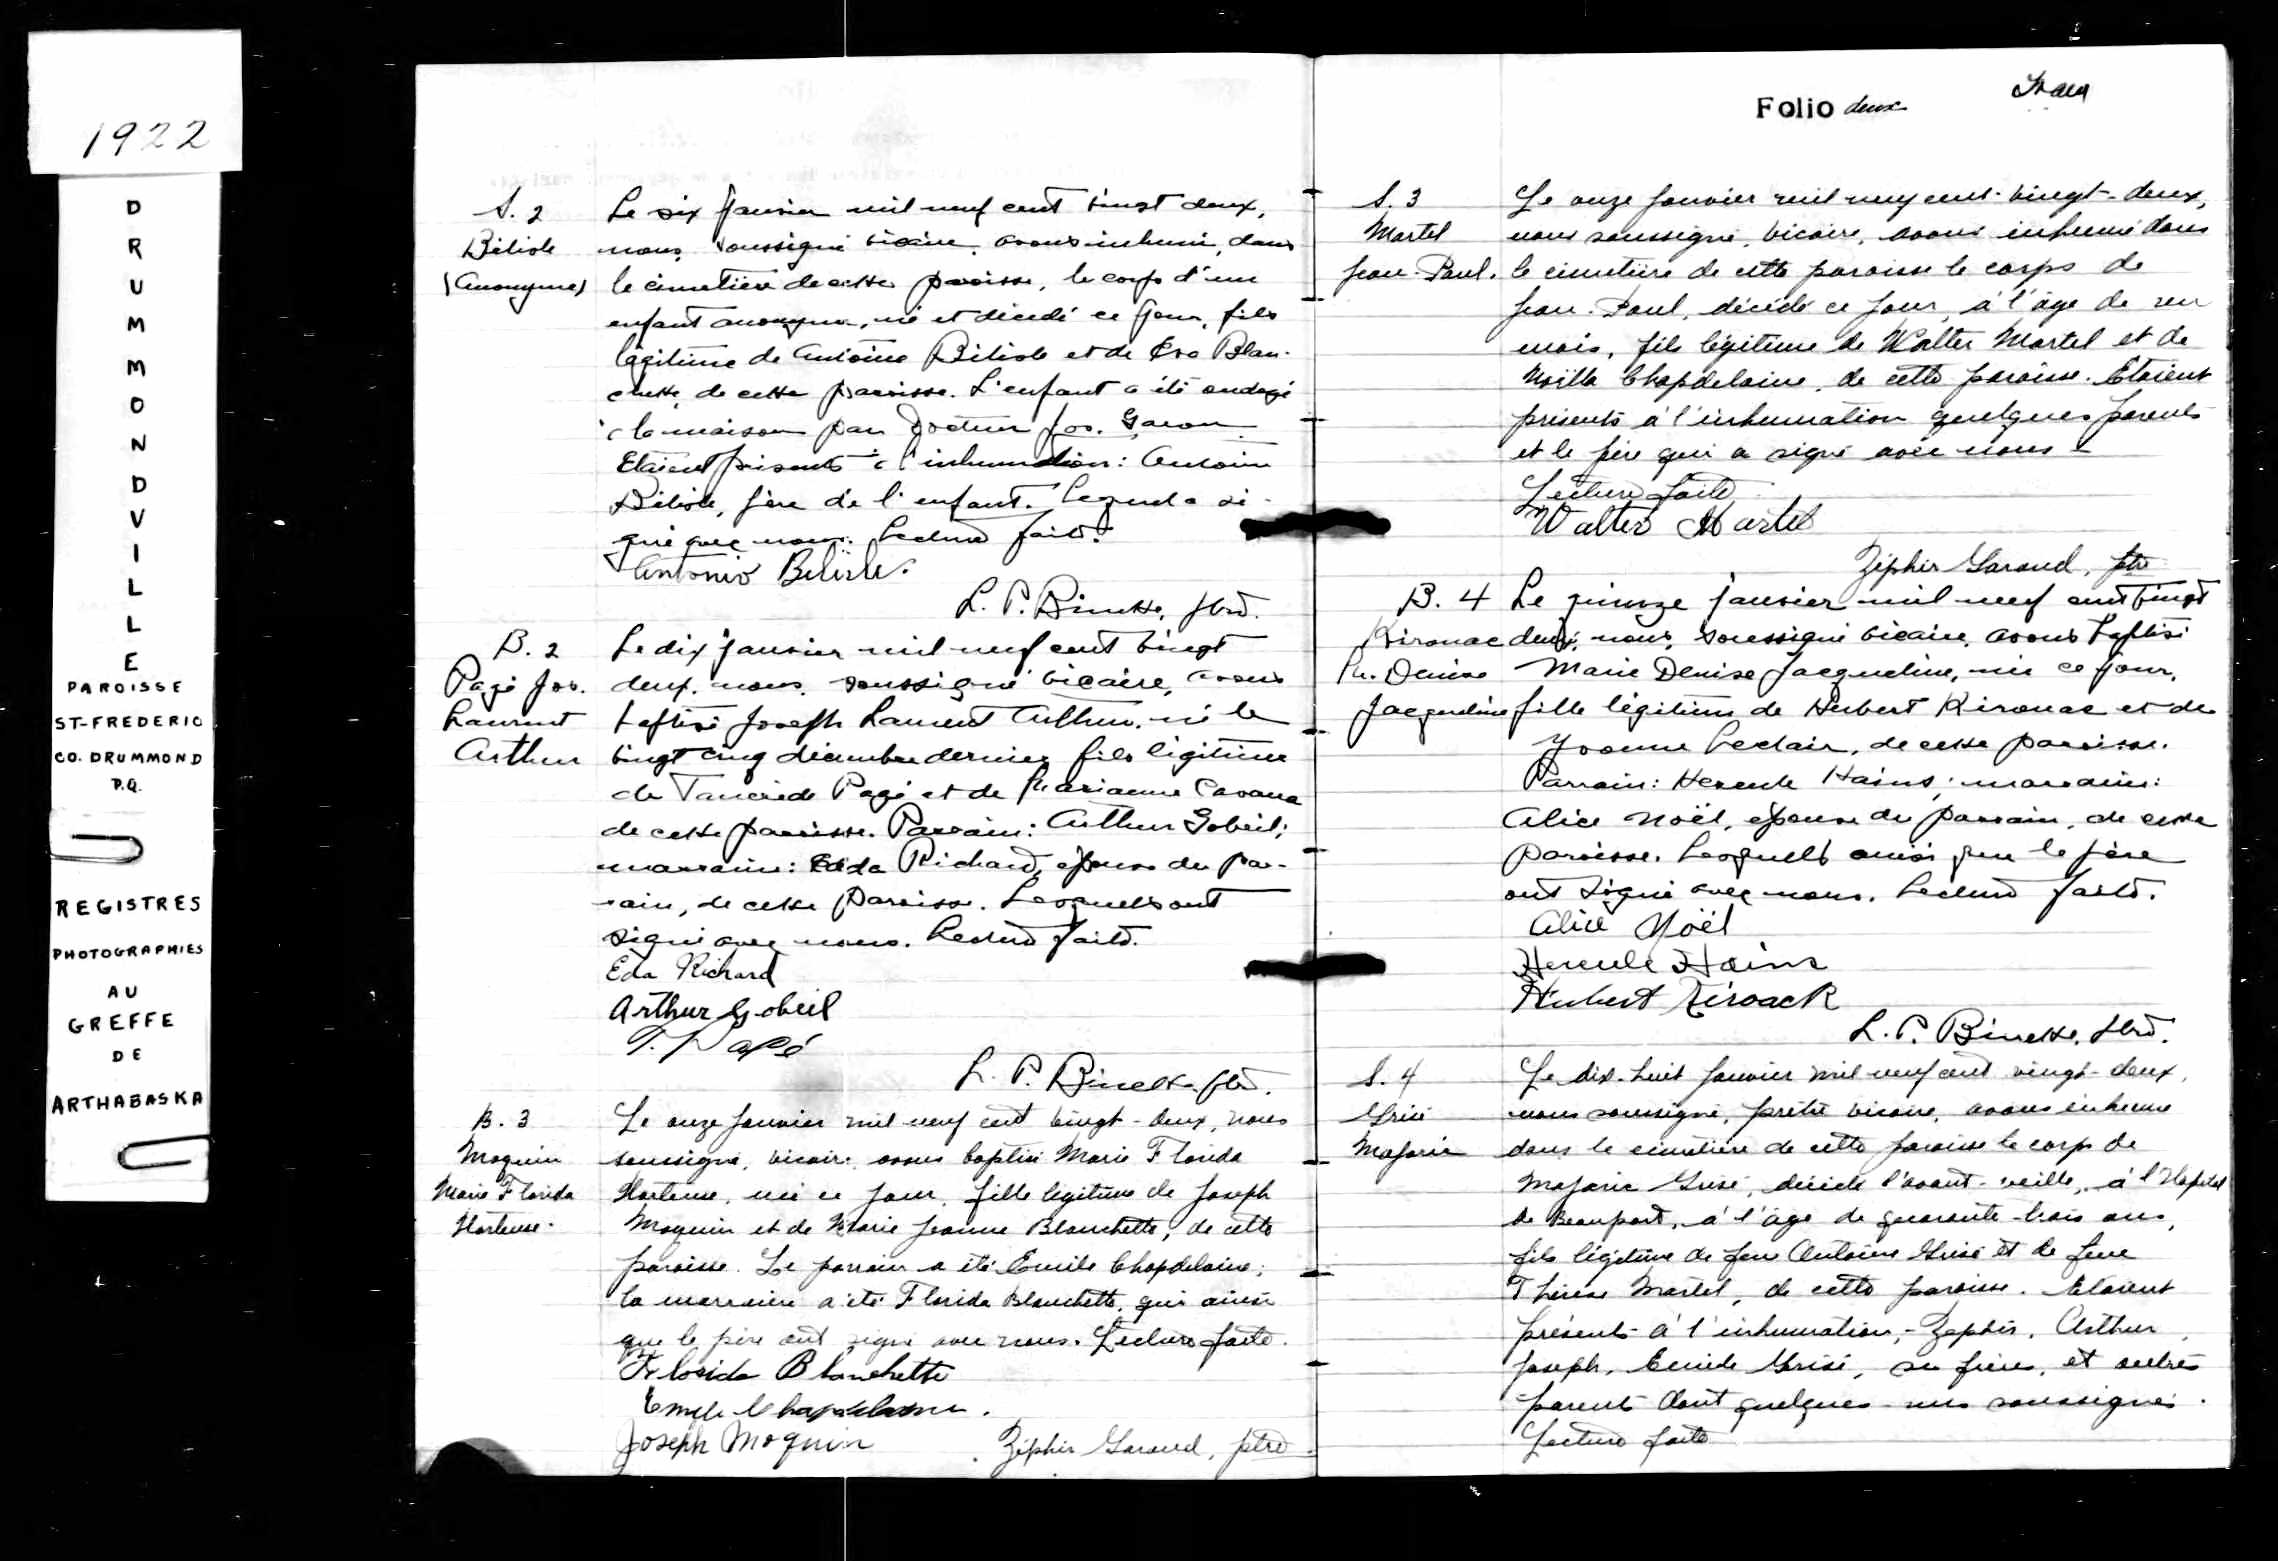 1922
DRUMMONDVILLE
PAROISSE
ST-FREDERIC
CO. DRUMMOND
P.Q.
REGISTRES
PHOTOGRAPHIES
AU
GREFFE
DE
ARTHABASKA
S. 2
Bélisle
(Anonyme)
Le six janvier mil neuf cent vingt deux,
nous, soussigné vicaire, avons inhumé, dans
le cimetière de cette paroisse, le corps d'un
enfant anonyme, né et décédé ce jour, fils
légitime de Antoine Bélisle et de Eva Blan-
chette, de cette paroisse. L'enfant a été ondoyé
à la maison par Docteur Jos. Garon
Etaient présents à l'inhumation: Antoine
Bélisle, père de l'enfant. Lequel a si-
gné avec nous. Lecture faite.
Antonio Belisle.
L. P. Binette, ptre.
B. 2
Pagé Jos.
Laurent
Arthur
Le dix janvier mil neuf cent vingt
deux, nous, soussigné vicaire, avons
baptisé Joseph Laurent Arthur, né le
vingt cinq décembre dernier, fils légitime
de Tancrède Pagé et de Marianne Cavana
de cette paroisse. Parrain: Arthur Gobeil;
marraine: Eda Richard, épouse du par-
rain, de cette paroisse. Lesquels ont
signé avec nous. Lecture faite.
Eda Richard
Arthur Gobeil
T. Pagé
L. P. Binette, ptre.
B. 3
Moquin
Marie Florida
Hortense.
Le onze janvier mil neuf cent vingt-deux, nous
soussigné, vicaire, avons baptisé Marie Florida
Hortense, née ce jour, fille légitime de Joseph
Moquin et de Marie Jeanne Blanchette, de cette
paroisse. Le parrain a été Emile Chapdelaine;
la marraine a été Florida Blanchette, qui ainsi
que le père ont signé avec nous. Lecture faite.
Florida Blanchette
Emile Chapdelaine.
Joseph Moquin
Zéphir Garaud, ptre
Folio deux
S. 3
Martel
Jean-Paul.
Le onze janvier mil neuf cent-vingt-deux,
nous soussigné, vicaire, avons inhumé dans
le cimetière de cette paroisse le corps de
Jean-Paul, décédé ce jour, à l'âge de un
mois, fils légitime de Walter Martel et de
Noilla Chapdelaine, de cette paroisse. Etaient
présents à l'inhumation quelques parents
et le père qui a signé avec nous
Lecture faite
Walter Martel
Zéphir Garaud, ptre
B. 4
Kirouac
M. Denise
Jacqueline
Le quinze janvier mil neuf cent vingt
deux, nous, soussigné vicaire, avons baptisé
Marie Denise Jacqueline, née ce jour,
fille légitime de Herbert Kirouac et de
Yvonne Leclair, de cette paroisse.
Parrain: Hercule Hains; marraine:
Alice Noël, épouse du parrain, de cette
paroisse. Lesquels ainsi que le père
ont signé avec nous. Lecture faite.
Alice Noël
Hercule Hains
Hubert Kiroack
L. P. Binette, ptre.
S. 4
Grisé
Majoric
Le dix-huit janvier mil neuf cent vingt-deux,
nous soussigné, prêtre vicaire, avons inhumé
dans le cimetière de cette paroisse le corps de
Majoric Grisé, décédé l'avant-veille, à l'Hôpital
de Beauport, à l'âge de quarante-trois ans,
fils légitime de feu Antoine Grisé et de feue
Thérèse Martel, de cette paroisse. Etaient
présents à l'inhumation,- Zéphir, Arthur,
Joseph, Emile Grisé, ses frères, et autres
parents dont quelques-uns soussignés.
Lecture faite